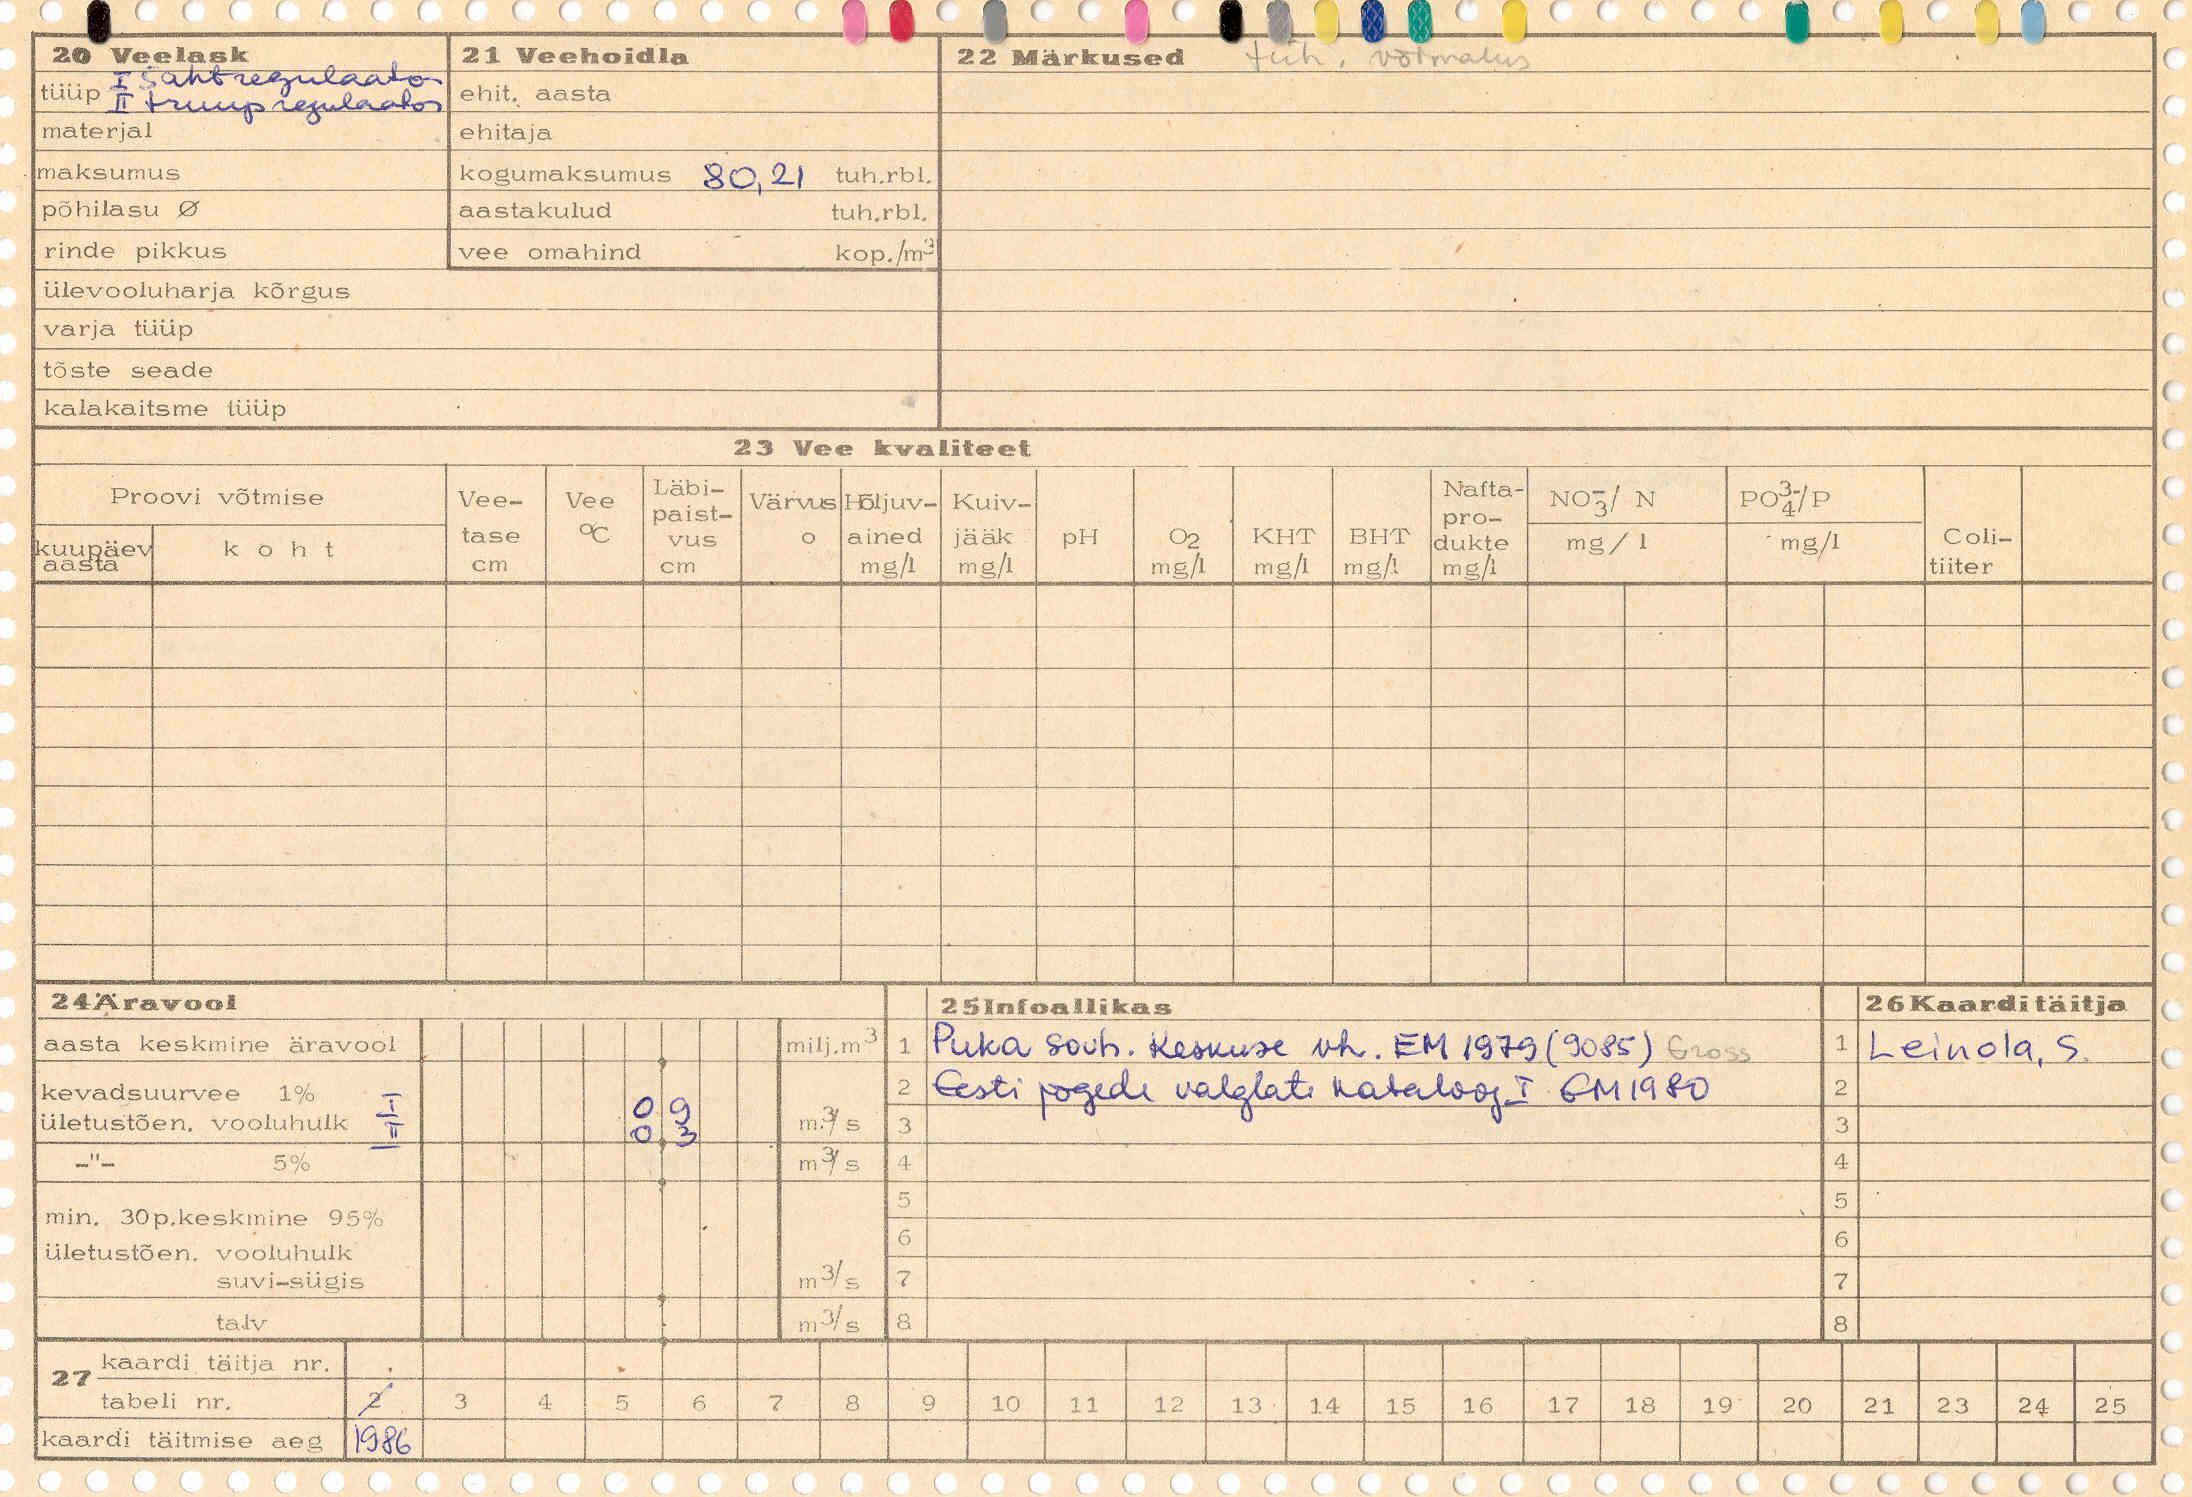 20 Veelask
tüüp I Šahtregulaator
II truupregulaator
materjal
maksumus
põhilasu Ø
rinde pikkus
ülevooluharja kõrgus
varja tüüp
tõste seade
kalakaitsme tüüp
21 Veehoidla
ehit. aasta
ehitaja
kogumaksumus 80,21 tuh.rbl.
aastakulud tuh.rbl.
vee omahind kop./m3
22 Märkused tüh. võimalus
23 Vee kvaliteet
Proovi võtmise
kuupäev aasta
koht
Vee-
tase
cm
Vee
°C
Läbi-
paist-
vus
cm
Värvus
o
Hõljuv-
ained
mg/l
Kuiv-
jääk
mg/l
pH
O2
mg/l
KHT
mg/l
BHT
mg/l
Nafta-
pro-
dukte
mg/l
NO3-/ N
mg/l
PO4 3-/P
mg/l
Coli-
tiiter
24 Äravool
aasta keskmine äravool milj.m3
kevadsuurvee 1%
I 0 9
ületustõen. vooluhulk II 0 3 m3/s
-"- 5% m3/s
min. 30p.keskmine 95%
ületustõen. vooluhulk
suvi-sügis m3/s
talv m3/s
25 Infoallikas
1 Puka sovh. Keskuse vh. EM 1979 (9085) Gross
2 Eesti jõgede valglate kataloog I EM 1980
3
4
5
6
7
8
26 Kaarditäitja
1 Leinola, S.
2
3
4
5
6
7
8
27 kaardi täitja nr.
tabeli nr. 2 3 4 5 6 7 8 9 10 11 12 13 14 15 16 17 18 19 20 21 23 24 25
kaardi täitmise aeg 1986